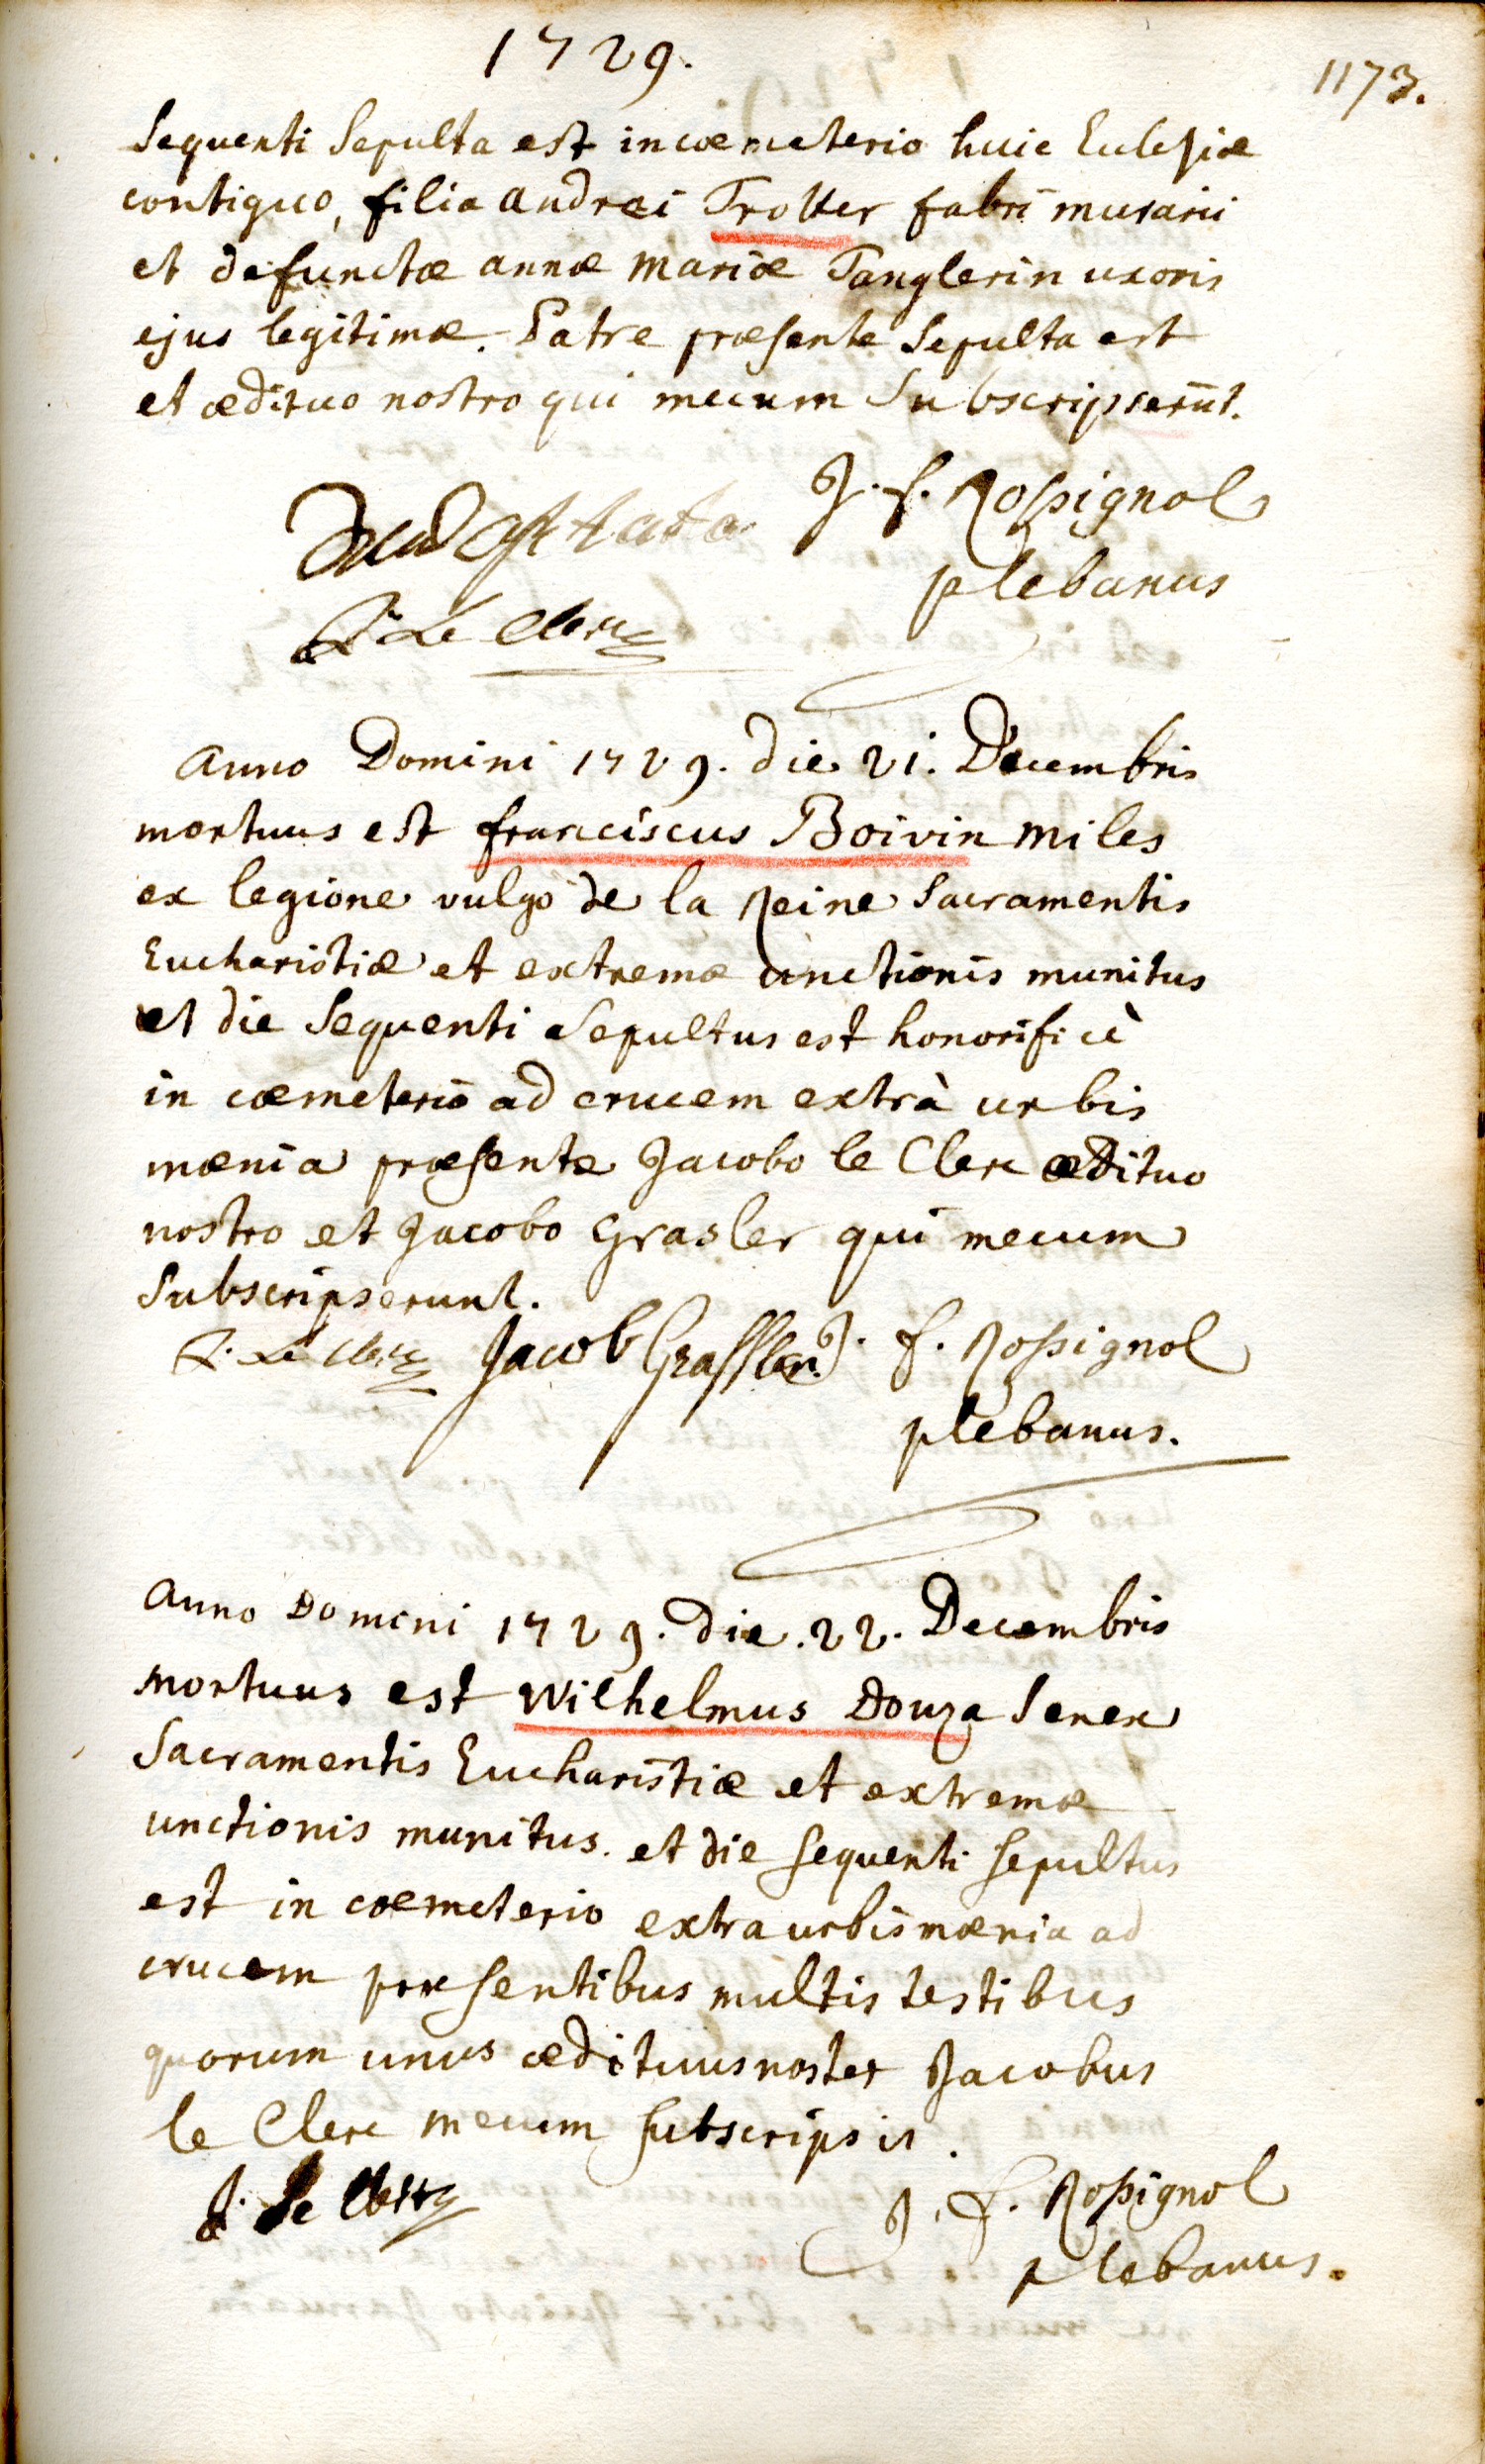 1729.
1173.
Sequenti Sepulta est in cœmeterio huic Eclesiæ
contiguo, filia andrei Trotter fabri murarii
et defunctæ annæ mariæ Tanglerin uxoris
ejus legitimæ. Patre præsente Sepulta est
et ædituo nostro qui mecum Subscripserūt.
J. f. Rossignol
plebanus
J. Le Clerc
Anno Domini 1729. die 21. Decembris
mortuus est franciscus Boivin miles
ex legione vulgo de la Reine Sacramentis
Eucharistiæ et extremæ unctionis munitus
et die Sequenti Sepultus est honorificè
in cœmeterio ad crucem extrà urbis
mœnia præsente Jacobo le Clerc ædituo
nostro et Jacobo Grasler qui mecum
Subscripserunt.
J. Le Clerc Jacob Grassler J. f. Rossignol
plebanus.
Anno Domini 1729. die. 22. Decembris
mortuus est Wilhelmus Douza Senex
Sacramentis Eucharistiæ et extremæ
unctionis munitus. et die sequenti sepultus
est in cœmeterio extra urbis mœnia ad
crucem præsentibus multis testibus
quorum unus ædituus noster Jacobus
le Clerc mecum subscripsit.
J. Le Clerc J. f. Rossignol
plebanus.